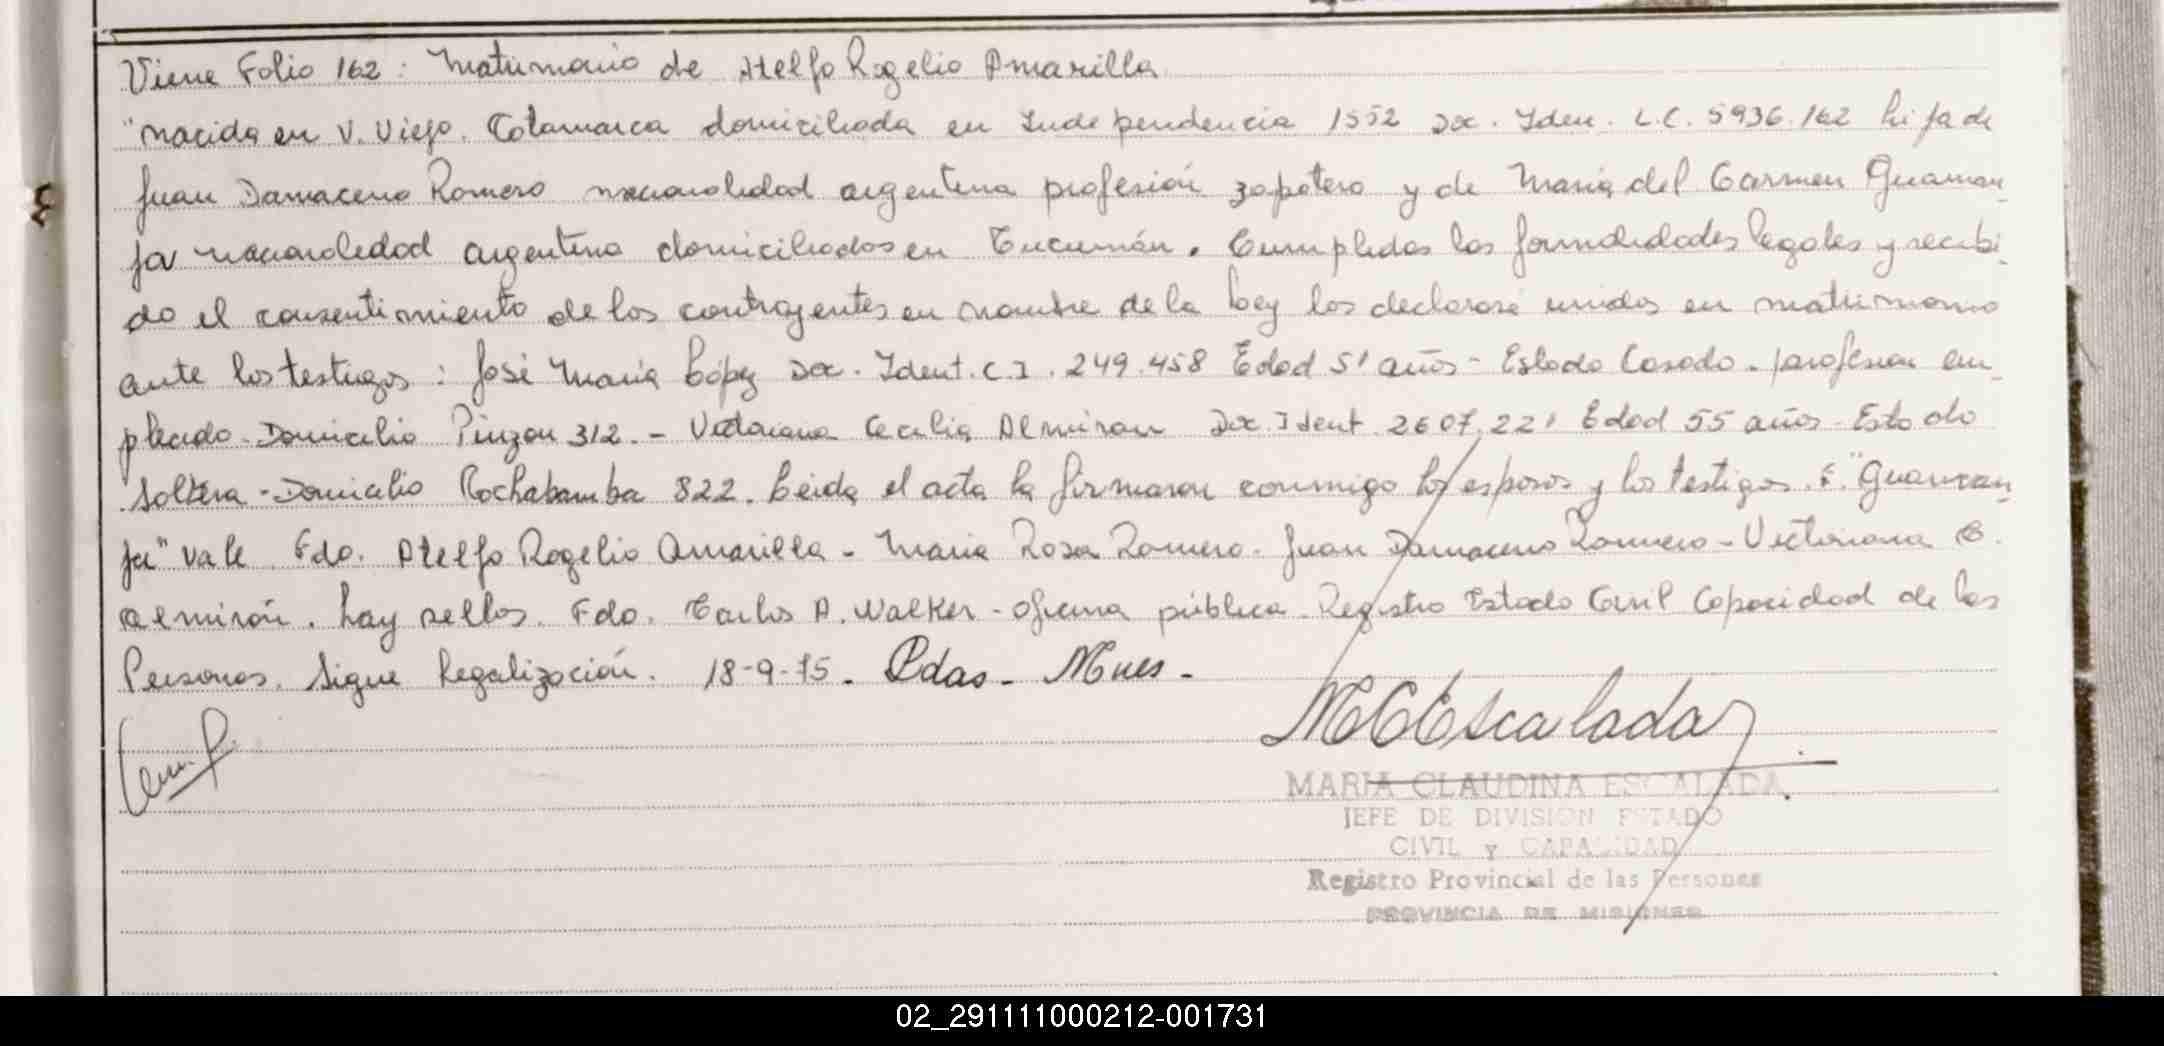 Viene Folio 162: Matrimonio de Atelfo Rogelio Amarilla
"nacida en V. Viejo. Catamarca domiciliada en Independencia 1552 Doc. Iden. L.C. 5936.162 hija de
Juan Damaceno Romero nacionalidad argentina profesión zapatero y de María del Carmen Guaman
ja nacionalidad argentina domiciliados en Tucumán. Cumplidas las formalidades legales y recibi
do el consentimiento de los contrayentes en nombre de la Ley los declararé unidos en matrimonio
ante los testigos: José María López Doc. Ident. C.I. 249.458 Edad 51 años - Estado Casado. profesión em
pleado. Domicilio Pinzon 312. - Victoriana Cecilia Almiron Doc. Ident 2607.221 Edad 55 años. Estado
Soltera - Domicilio Cochabamba 822. Leida el acta la firmaron conmigo los esposos y los testigos. E. "Guaman
ja" vale. Fdo. Atelfo Rogelio Amarilla - Maria Rosa Romero. Juan Damaceno Romero - Victoriana C.
Almirón. hay sellos. Fdo. Carlos A. Walker - Oficina pública. Registro Estado Civil Capacidad de las
Personas. Sigue legalización. 18-9-75. Pdas - Mnes -
MCEscalada
MARIA CLAUDINA ESCALADA
JEFE DE DIVISION ESTADO
CIVIL y CAPACIDAD
Registro Provincial de las Personas
PROVINCIA DE MISIONES
02_291111000212-001731